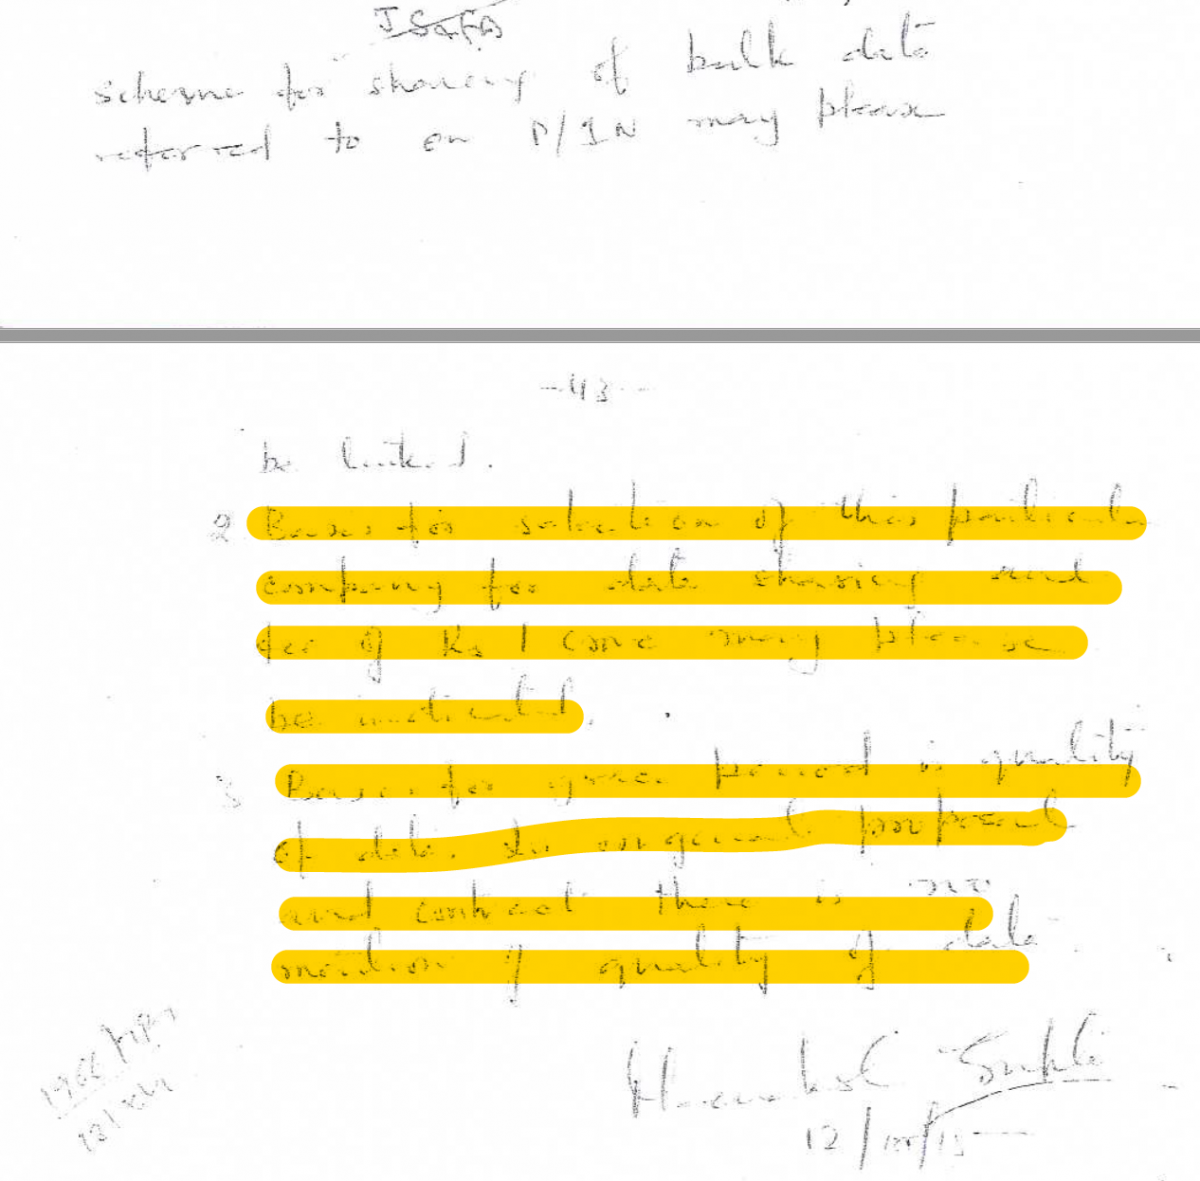 JS&FA
scheme for sharing of bulk data
referred to on P/1N may please
-43-
be linked.
2 Basis for selection of this particular
company for data sharing and
fee of Rs 1 crore may please
be indicated.
3 Basis for grace period is quality
of data. In original proposal
and contract there is no
mention of quality of data.
12/10/15